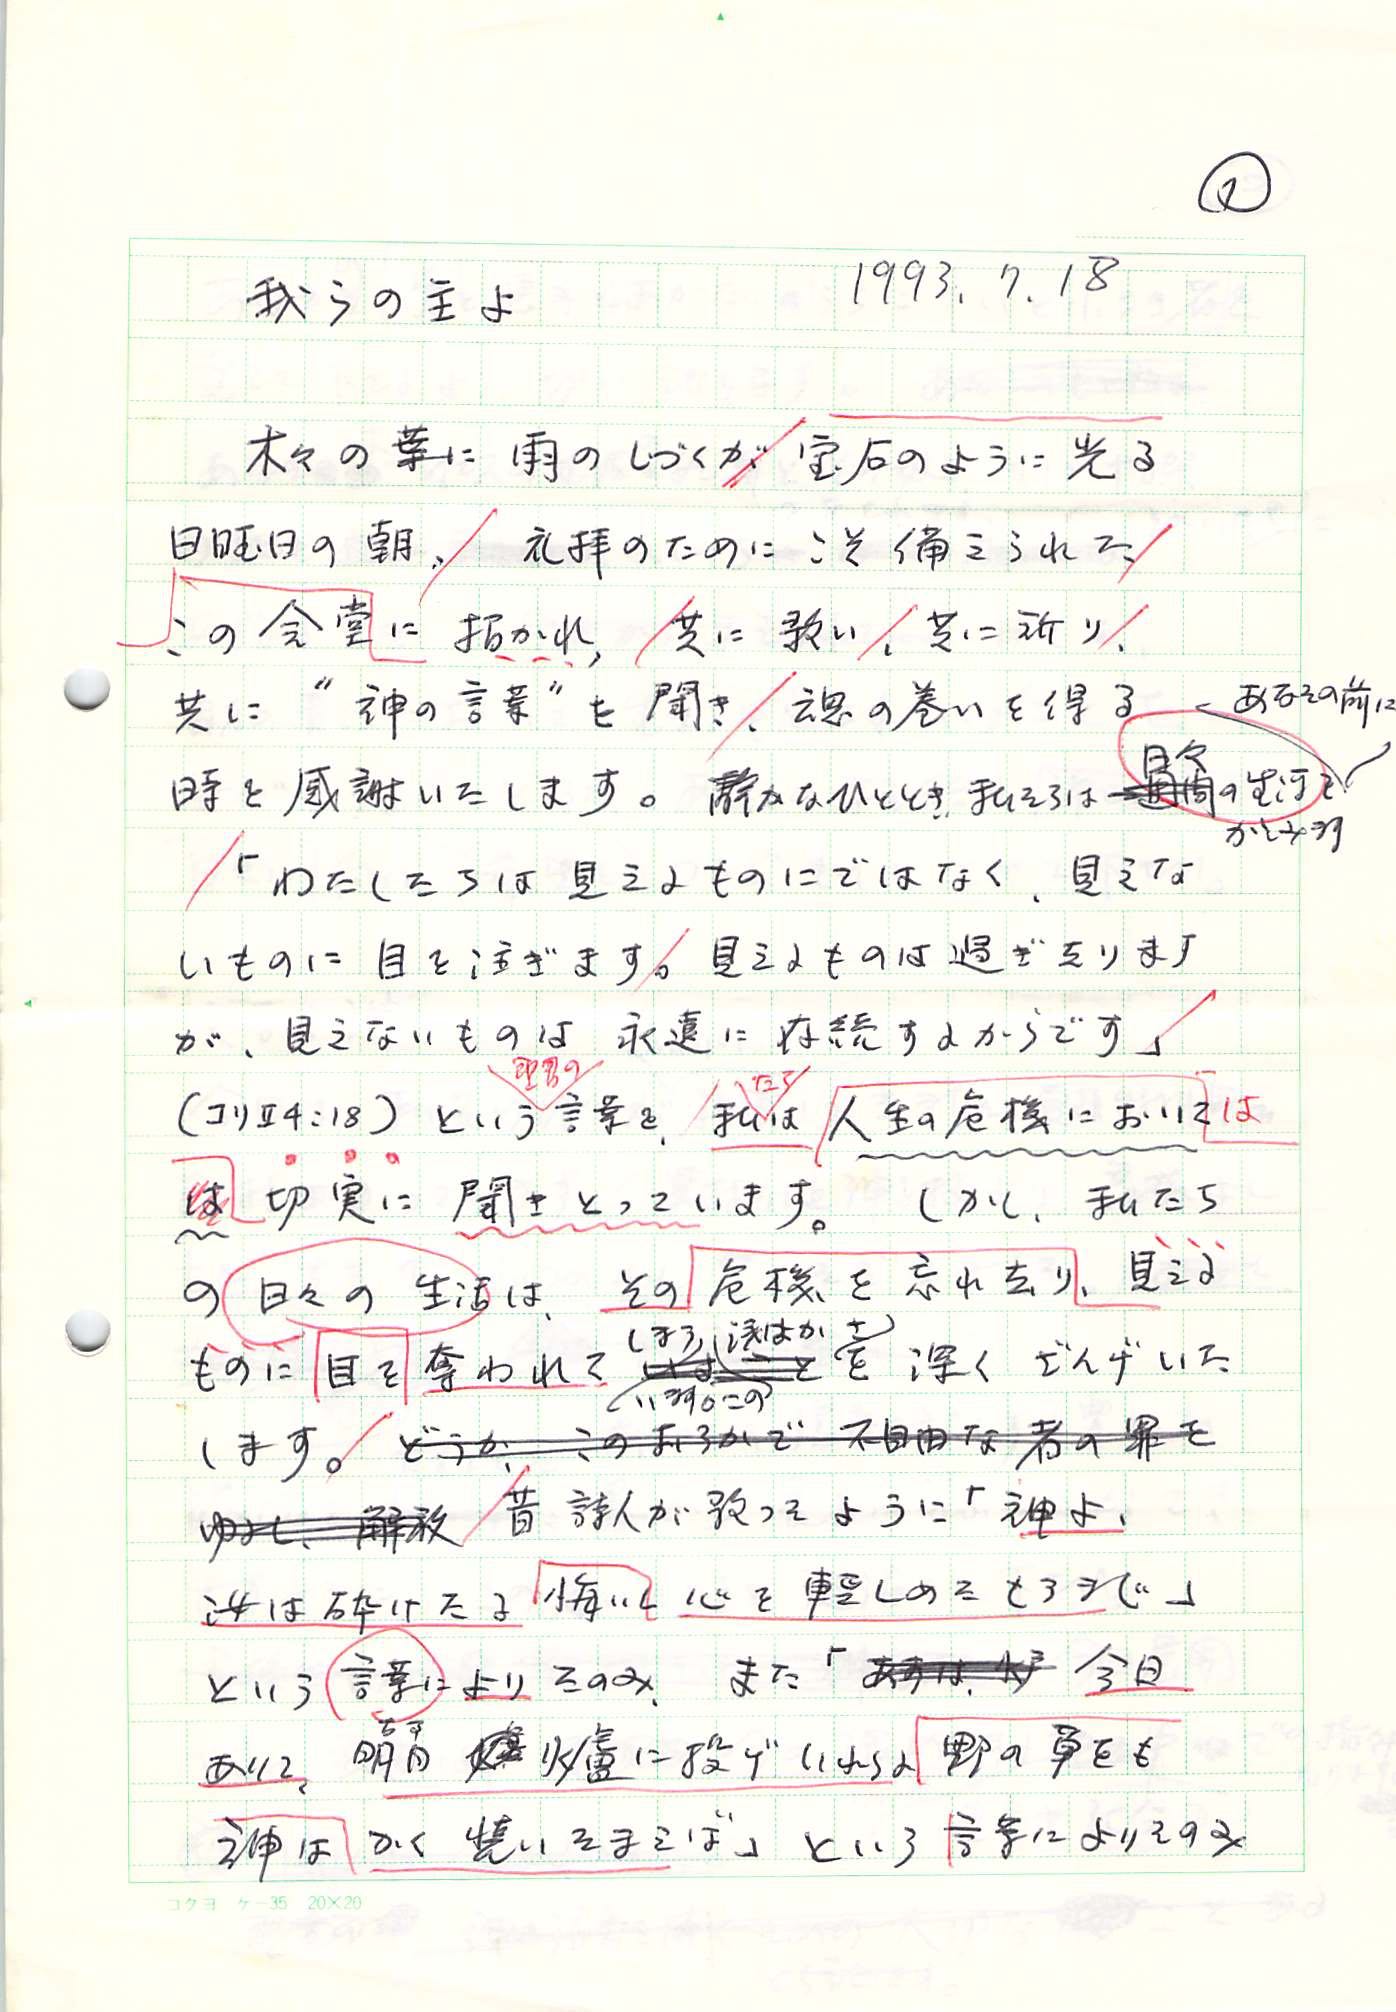 ①
1993.7.18
我らの主よ
木々の葉に雨のしづくが宝石のように光る
日曜日の朝、礼拝のためにこそ備えられた
この会堂に招かれ、共に歌い、共に祈り、
共に“神の言葉”を聞き、魂の養いを得る
あなたの前に
時を感謝いたします。静かなひととき、私たちは
日々
週間の生活を
かえりみます
「わたしたちは見えるものにではなく、見えな
いものに目を注ぎます。見えるものは過ぎ去ります
が、見えないものは永遠に存続するからです」
聖書の
たち
(コリⅡ4:18)という言葉を、私は人生の危機においては
は切実に聞きとっています。しかし、私たち
の日々の生活は、その危機を忘れ去り、見える
ものに目を奪われて
しまう浅はかさ
います。この
を深くざんげいた
します。どうか、このおろかで不自由な者の罪を
ゆるし、解放 昔詩人が歌ったように「神よ、
汝は砕けたる悔いし心を軽しめたもうまじ」
という言葉によりたのみ、また「今日
ありて、明日炉に投げいれらる野の草をも
神はかく装いたまえば」という言葉によりたのみ
コクヨ ケー35 20×20